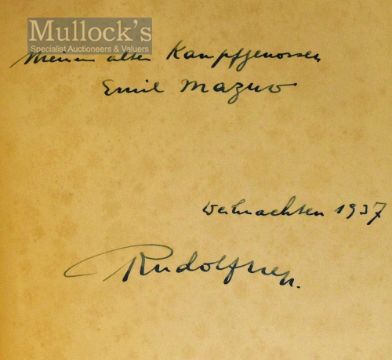 Mullock's
Specialist Auctioneers & Valuers
Meinem alten Kampfgenossen
Emil Mazuw
Weihnachten 1937
Rudolf Hess.